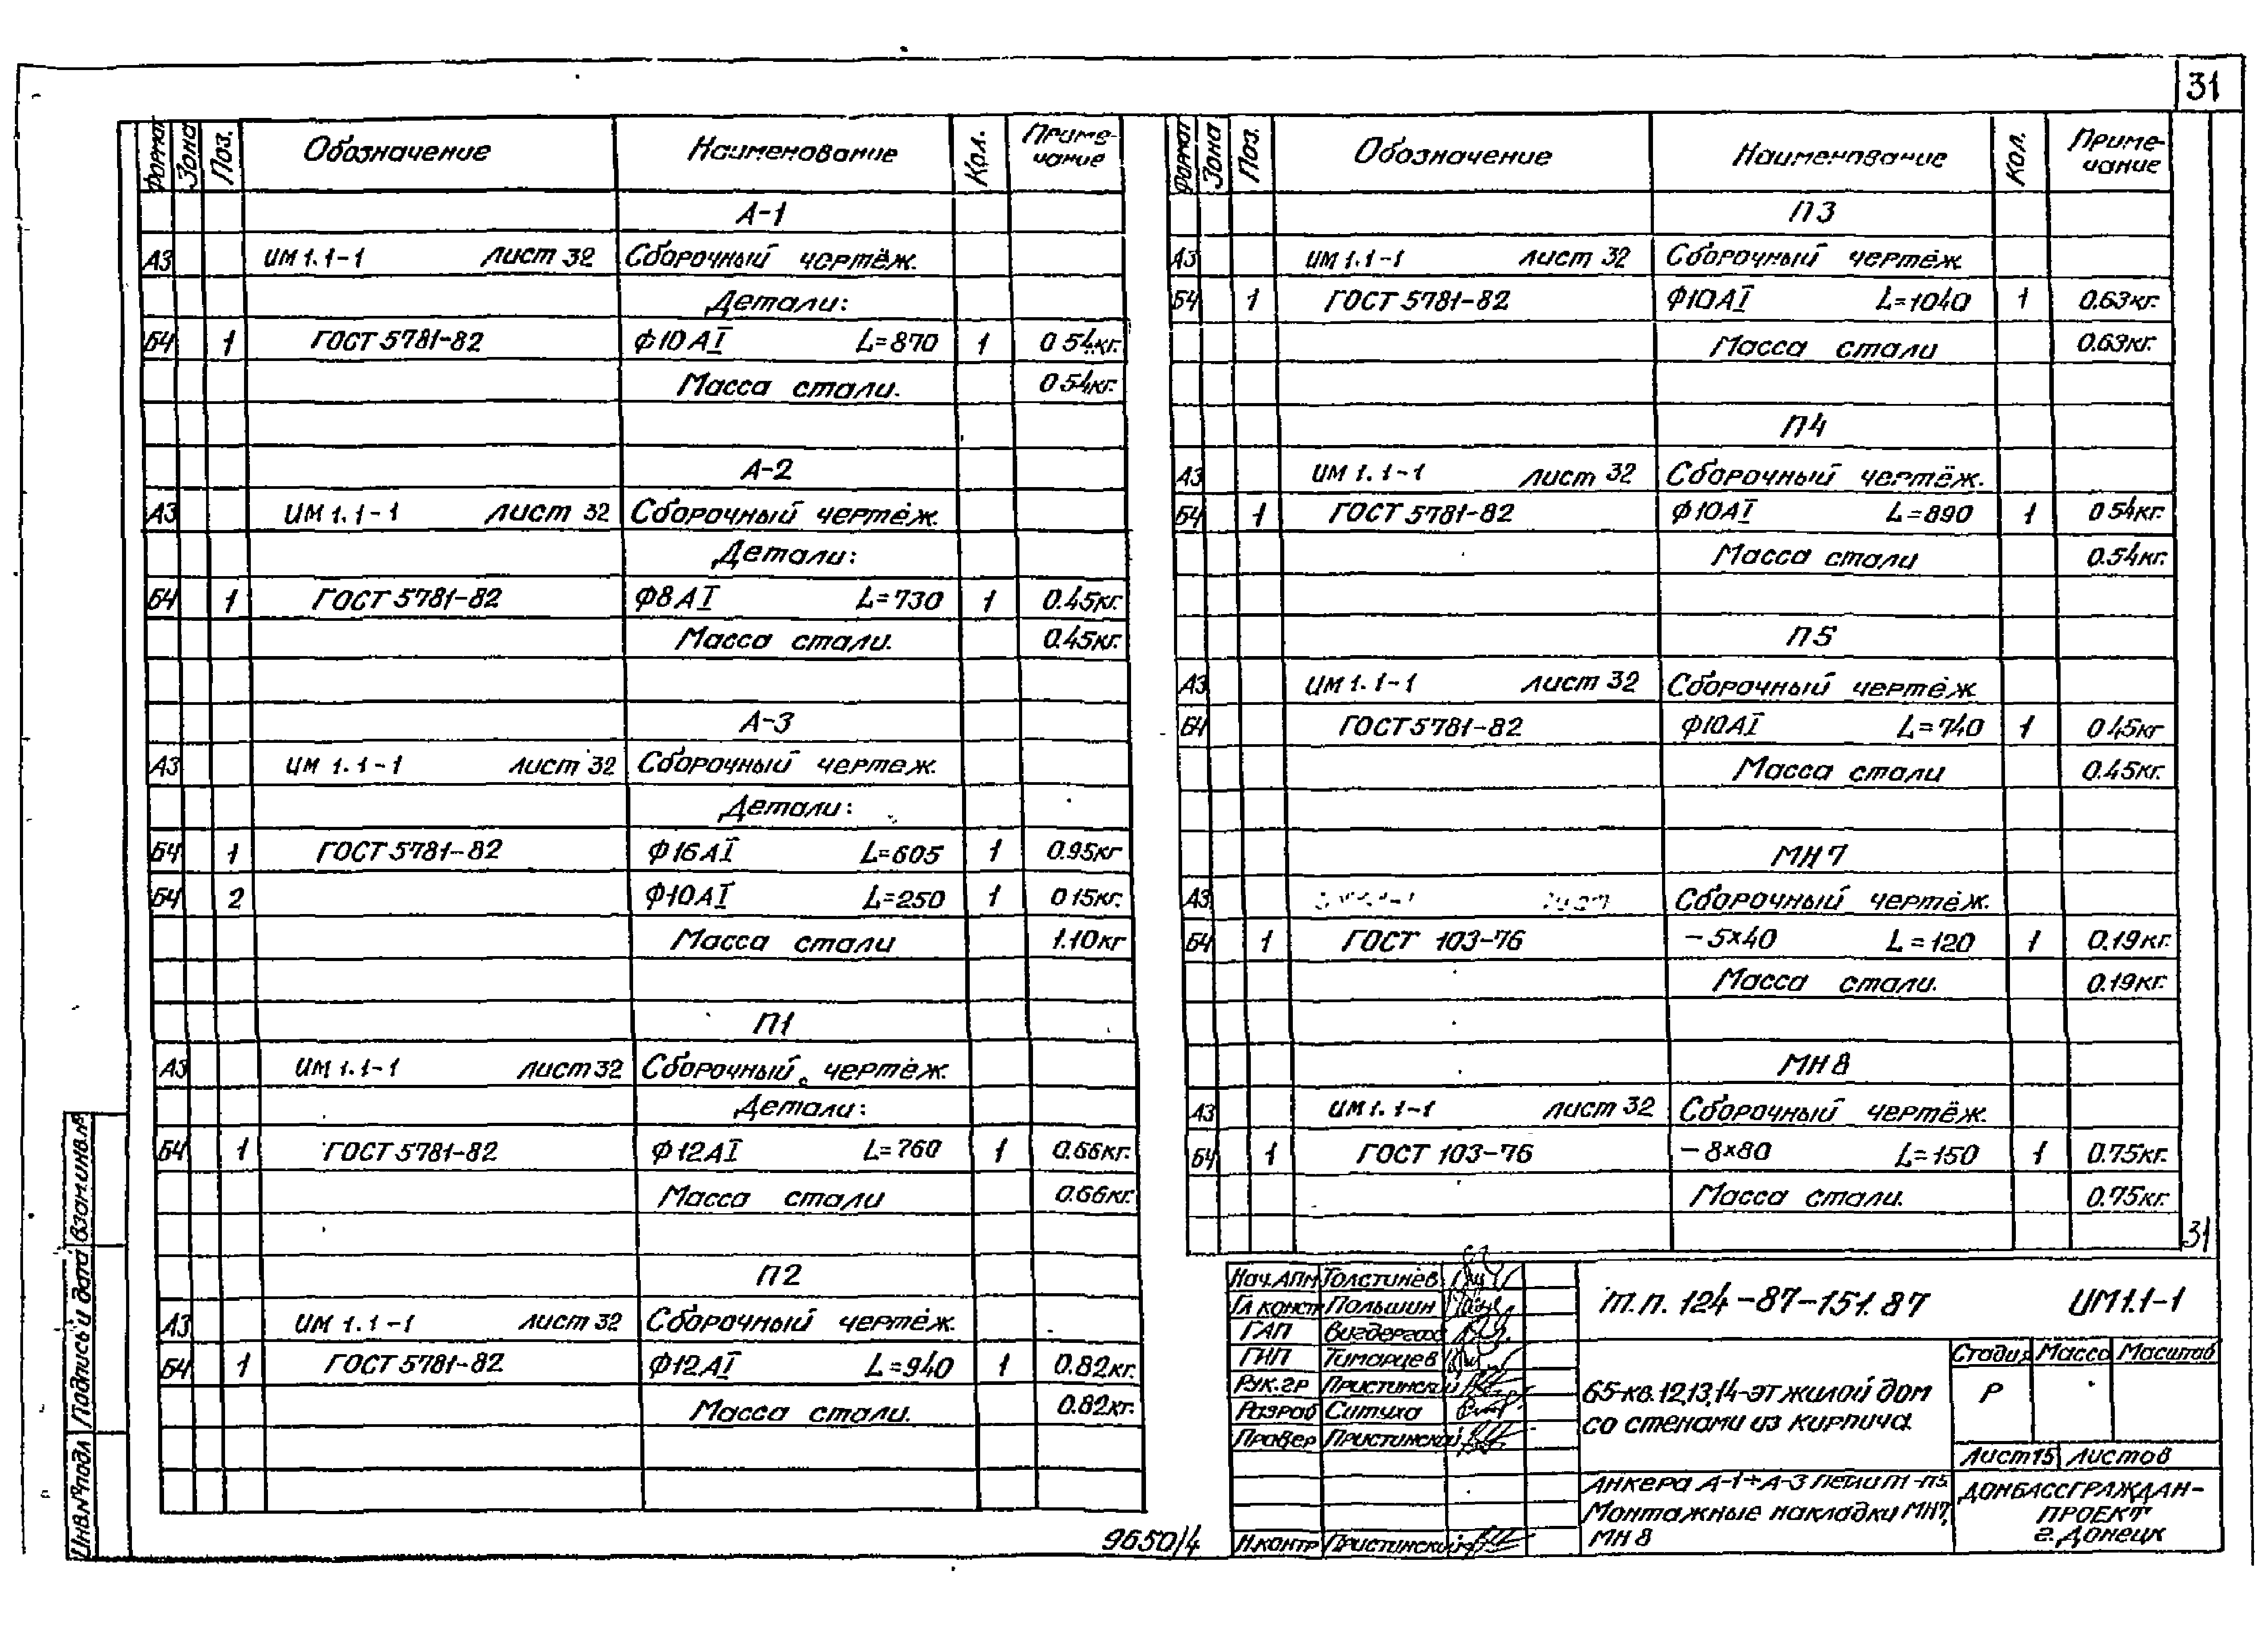 31
Формат Зона Поз. Обозначение Наименование Кол. Примечание
А-1
А3 ИМ 1.1-1 лист 32 Сборочный чертёж.
Детали:
Б4 1 ГОСТ 5781-82 Ф10АI L=870 1 0.54кг.
Масса стали. 0.54кг.
А-2
А3 ИМ 1.1-1 лист 32 Сборочный чертёж.
Детали:
Б4 1 ГОСТ 5781-82 Ф8АI L=730 1 0.45кг.
Масса стали. 0.45кг.
А-3
А3 ИМ 1.1-1 лист 32 Сборочный чертеж.
Детали:
Б4 1 ГОСТ 5781-82 Ф16АI L=605 1 0.95кг
Б4 2 Ф10АI L=250 1 0.15кг.
Масса стали 1.10кг
П1
А3 ИМ 1.1-1 лист 32 Сборочный чертёж.
Детали:
Б4 1 ГОСТ 5781-82 Ф12АI L=760 1 0.66кг.
Масса стали 0.66кг.
П2
А3 ИМ 1.1-1 лист 32 Сборочный чертёж.
Б4 1 ГОСТ 5781-82 Ф12АI L=940 1 0.82кг.
Масса стали. 0.82кг.
Формат Зона Поз. Обозначение Наименование Кол. Примечание
П3
А3 ИМ 1.1-1 лист 32 Сборочный чертёж
Б4 1 ГОСТ 5781-82 Ф10АI L=1040 1 0.63кг.
Масса стали 0.63кг.
П4
А3 ИМ 1.1-1 лист 32 Сборочный чертёж.
Б4 1 ГОСТ 5781-82 Ф10АI L=890 1 0.54кг.
Масса стали 0.54кг.
П5
А3 ИМ 1.1-1 лист 32 Сборочный чертёж
Б4 ГОСТ 5781-82 Ф10АI L=740 1 0.45кг
Масса стали 0.45кг.
МН7
А3 Сборочный чертёж.
Б4 1 ГОСТ 103-76 -5×40 L=120 1 0.19кг.
Масса стали. 0.19кг.
МН8
А3 ИМ 1.1-1 лист 32 Сборочный чертёж.
Б4 1 ГОСТ 103-76 -8×80 L=150 1 0.75кг.
Масса стали. 0.75кг.
31
Нач.АПМ Толстинёв
Гл конст Польшин
ГАП
ГИП Тиморцев
Рук.гр Пристинский
Разраб Ситуха
Провер Пристинский
Н.контр Пристинский
т.п. 124-87-151.87 ИМ1.1-1
65-кв.12,13,14-эт жилой дом
со стенами из кирпича
Стадия Масса Масштаб
Р
Лист 15 Листов
Анкера А-1÷А-3 петли П1-П5
Монтажные накладки МН7,
МН8
ДОНБАССГРАЖДАН-
ПРОЕКТ
г. Донецк
9650/4
Взам.инв.№
Подпись и дата
Инв.№подл